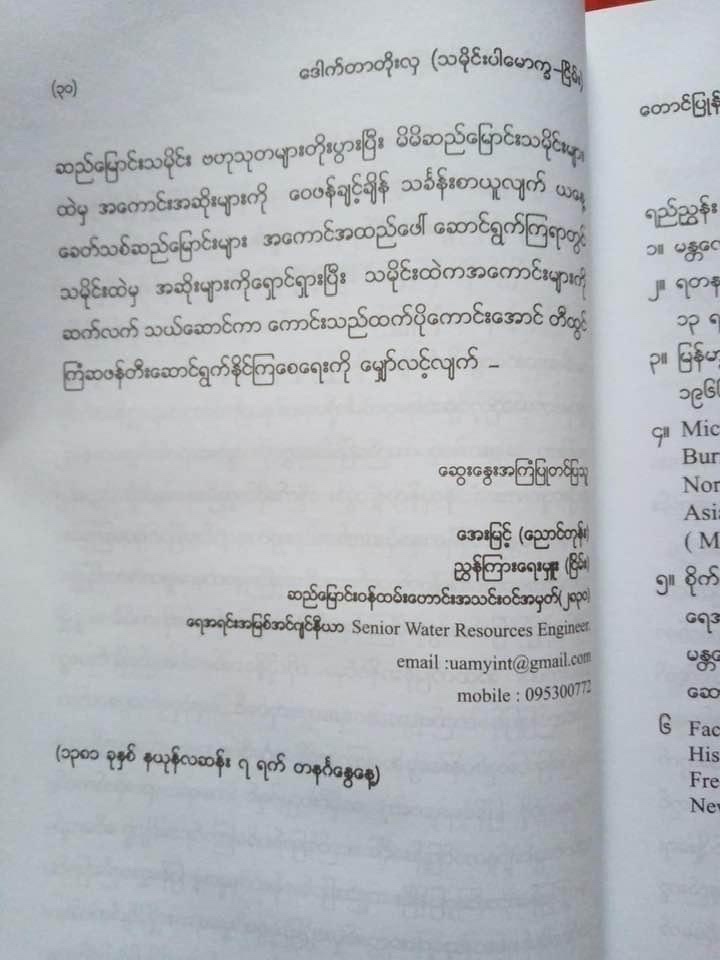 (၃၀)
ဒေါက်တာတိုးလှ (သမိုင်းပါမောက္ခ-ငြိမ်း)
ဆည်မြောင်းသမိုင်း ဗဟုသုတများတိုးပွားပြီး မိမိဆည်မြောင်းသမိုင်းများ
ထဲမှ အကောင်းအဆိုးများကို ဝေဖန်ချင့်ချိန် သင်္ခန်းစာယူလျက် ယနေ့
ခေတ်သစ်ဆည်မြောင်းများ အကောင်အထည်ဖေါ် ဆောင်ရွက်ကြရာတွင်
သမိုင်းထဲမှ အဆိုးများကိုရှောင်ရှားပြီး သမိုင်းထဲကအကောင်းများကို
ဆက်လက် သယ်ဆောင်ကာ ကောင်းသည်ထက်ပိုကောင်းအောင် တီထွင်
ကြံဆဖန်တီးဆောင်ရွက်နိုင်ကြစေရေးကို မျှော်လင့်လျက် –
ဆွေးနွေးအကြံပြုတင်ပြသူ
အေးမြင့် (ညောင်တုန်း)
ညွှန်ကြားရေးမှူး (ငြိမ်း)
ဆည်မြောင်းဝန်ထမ်းဟောင်းအသင်းဝင်အမှတ်(၂၈၃၀)
ရေအရင်းအမြစ်အင်ဂျင်နီယာ Senior Water Resources Engineer.
email :uamyint@gmail.com
mobile : 095300772
(၁၃၈၁ ခုနှစ် နယုန်လဆန်း ၇ ရက် တနင်္ဂနွေနေ့)
တောင်ပြုန်
ရည်ညွှန်း
၁။ မန္တလေ
၂။ ရတန
၁၃ ရ
၃။ မြန်မ
၁၉၆
၄။ Mic
Bur
Nor
Asia
( M
၅။ စိုက်
ရေအ
မန္တလေ
ဆော
၆ Fac
His
Fre
Nev